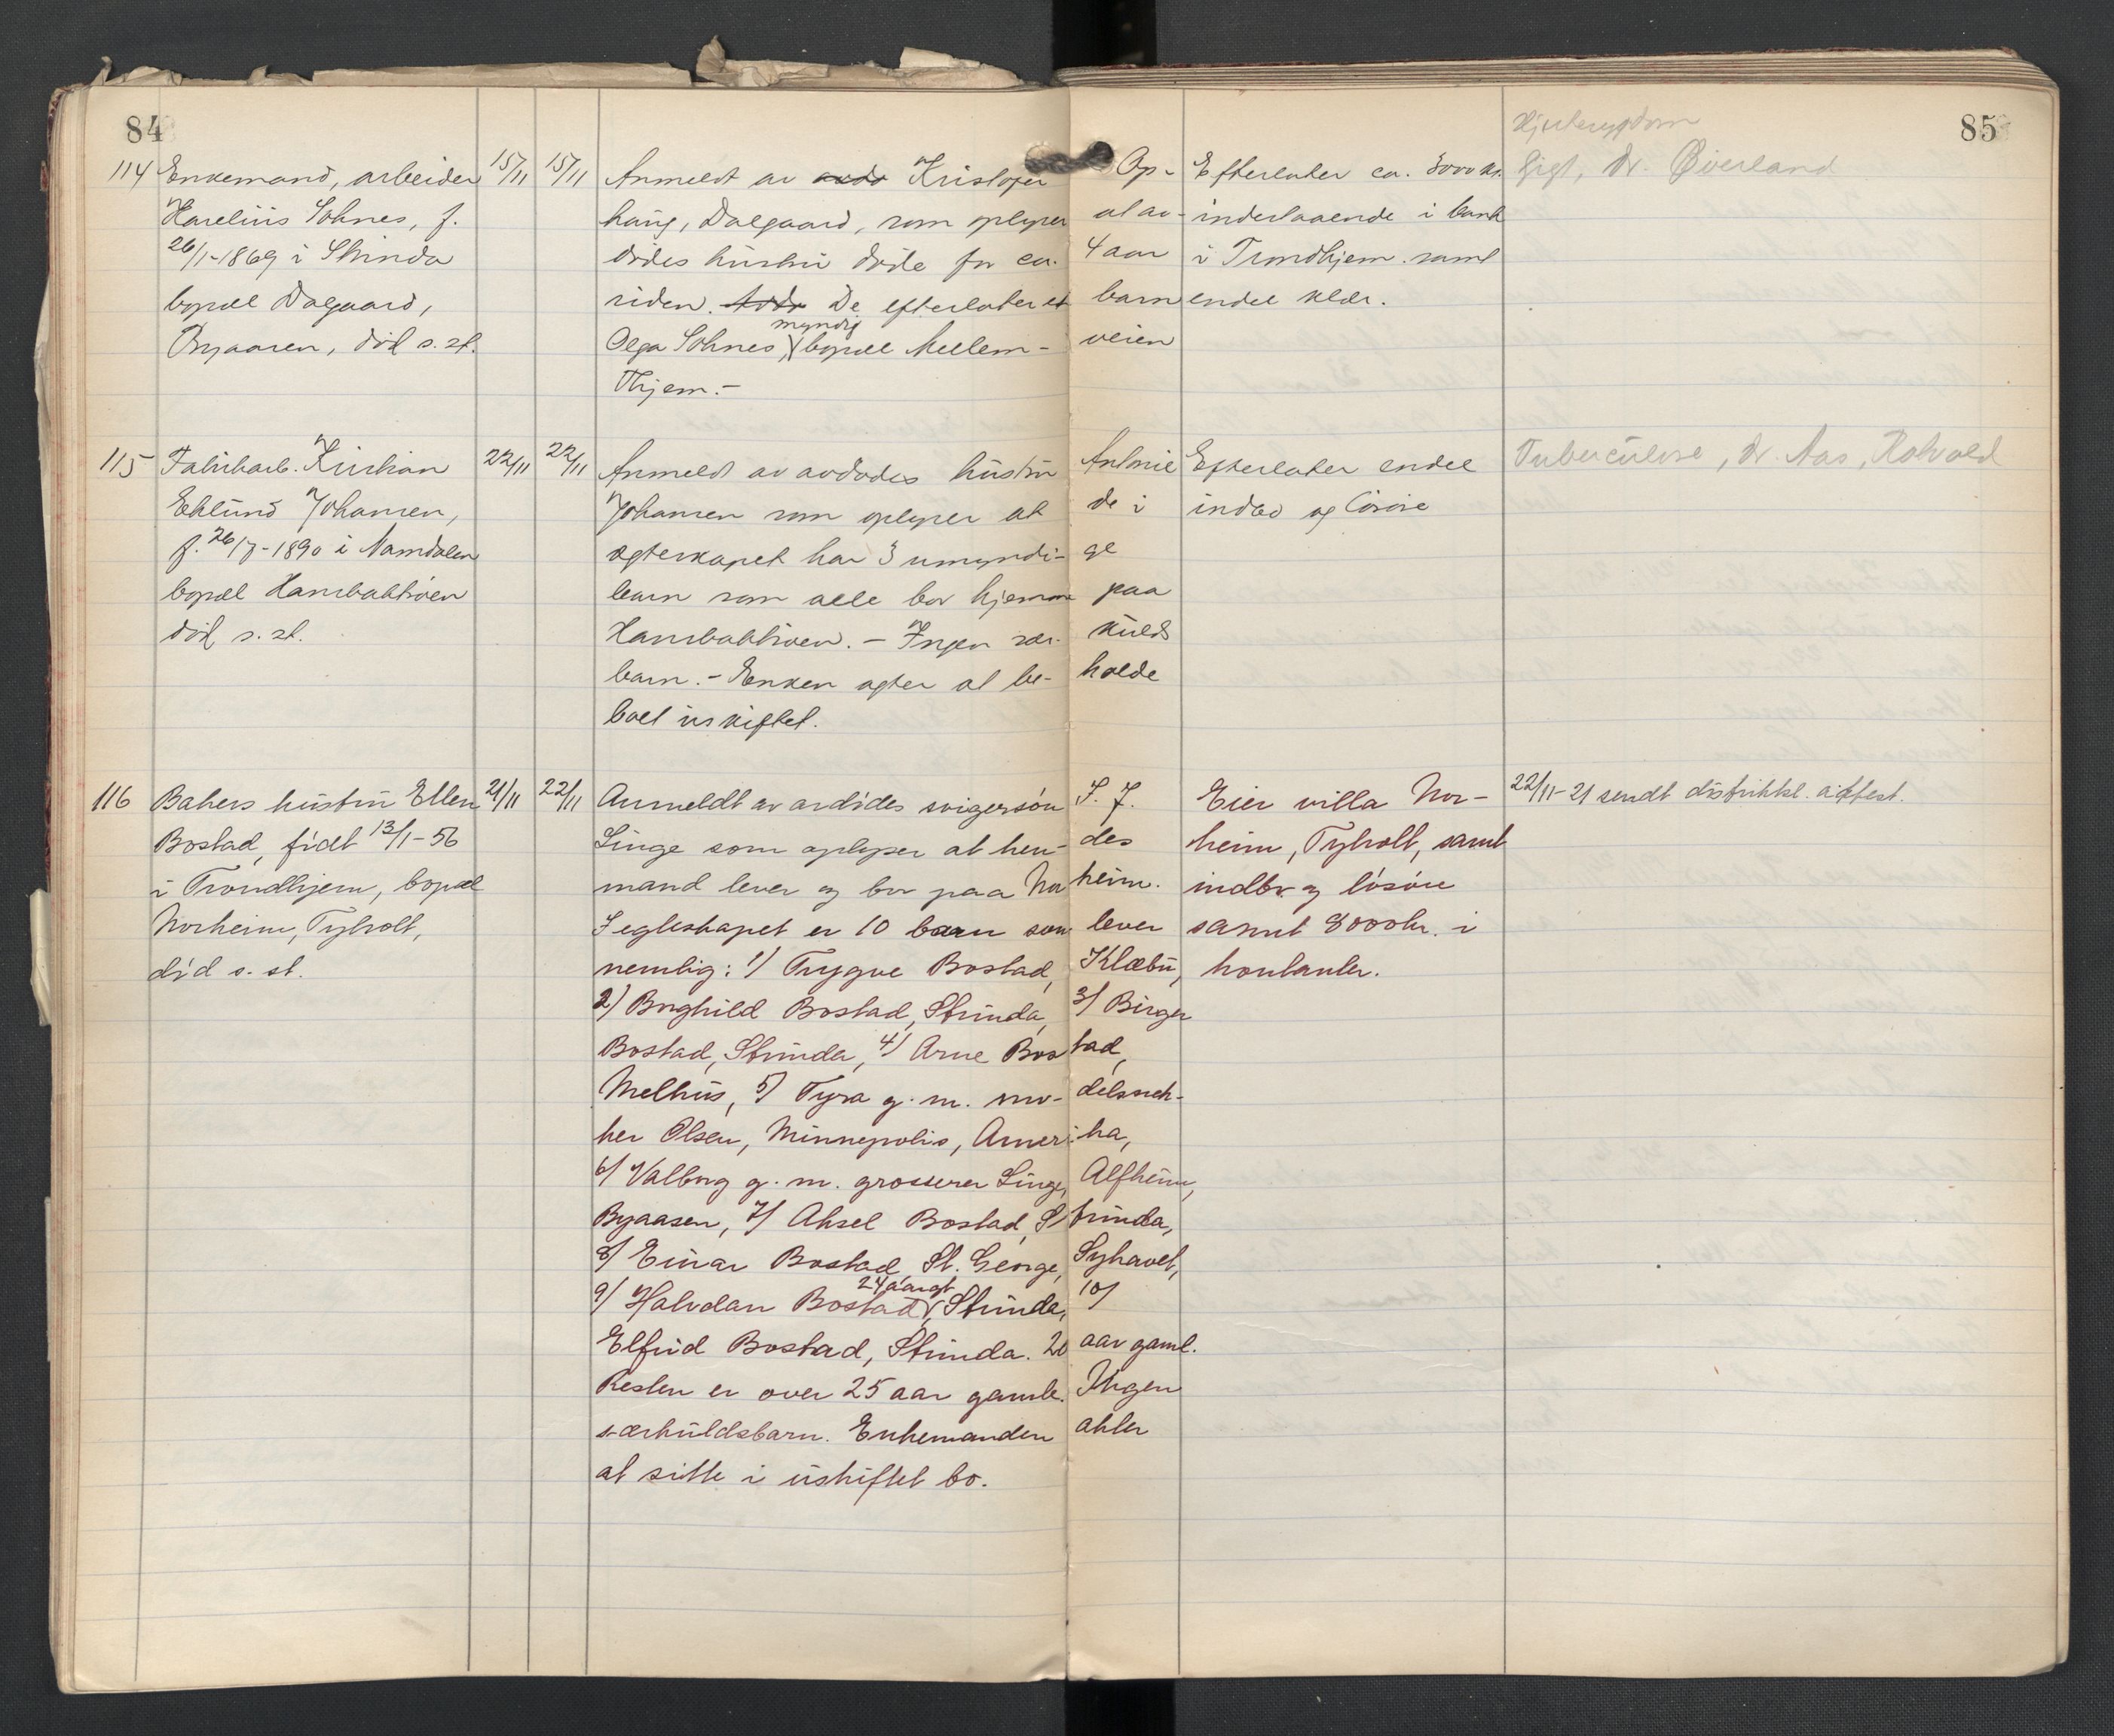 84
85
Hjertesygdom
114 Enkemand, arbeider 15/11 15/11 Anmeldt av Kristofer Op- Efterlater ca. 3000 kr. Gigt, Dr. Øverland
Karelius Solnes, f. haug, Dalgaard, som oplyser at av- indestaaende i bank
26/1-1869 i Strinda dødes hustru døde for ca. 4 aar i Trondhjem samt
bopæl Dalgaard, siden. De efterlater et barn endel klær.
Byaasen, død s. st. Olga Solnes, myndig bopæl Mellem- veien
Thjem.-
115 Fabrikarb. Kristian 22/11 22/11 Anmeldt av avdødes hustru Antonie Efterlater endel Tuberculose, Dr. Aas, Rotvold
Eklund Johansen, Johansen som oplyser at de i indbo og løsøre
f. 26/7-1890 i Namdalen egteskapet har 3 umyndi- ge
bopæl Hansbakktrøen barn som alle bor hjemme paa
død s. st. Hansbakktrøen. - Ingen sær- kulds
barn. - Enken agter at be- holde
boet uskiftet.
116 Bakers hustru Ellen 21/11 22/11 Anmeldt av avdødes svigersøn S. J. Eier villa Nor- 22/11-21 sendt distriktsl. attest.
Bostad, født 13/1-56 Linge som oplyser at hen- des heim, Tyholt, samt
i Trondhjem, bopæl mand lever og bor paa Nor heim. indbo og løsøre
Norheim, Tyholt, I egteskapet er 10 barn som lever samt 8000 kr. i
død s. st. nemlig: 1) Trygve Bostad, Klæbu, kontanter.
2) Borghild Bostad, Strinda, 3) Birger
Bostad, Strinda, 4) Arne Bos tad,
Melhus, 5) Tyra g. m. snedkersnek-
ker Olsen, Minnepolis, Ameri ka,
6) Valborg g. m. grosserer Linge, Alfheim,
Byaasen, 7) Aksel Bostad, S trinda,
8) Einar Bostad, St. George, Syhavet,
9) Halvdan Bostad, 24 aargl. Strinda, 10)
Elfrid Bostad, Strinda. 20 aar gaml.
Resten er over 25 aar gamle. Ingen
særkuldsbarn. Enkemanden akter
at sitte i uskiftet bo.